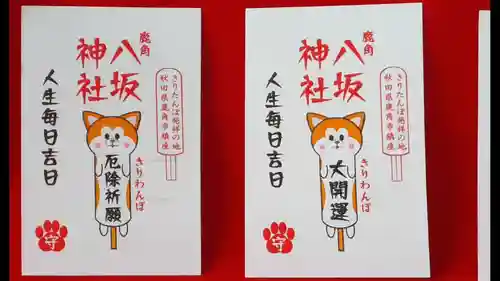 鹿角
八坂
神社
人生毎日吉日
きりたんぽ発祥の地
秋田県鹿角市鎮座
きりわんぽ
厄除祈願
守
鹿角
八坂
神社
人生毎日吉日
きりたんぽ発祥の地
秋田県鹿角市鎮座
きりわんぽ
大開運
守